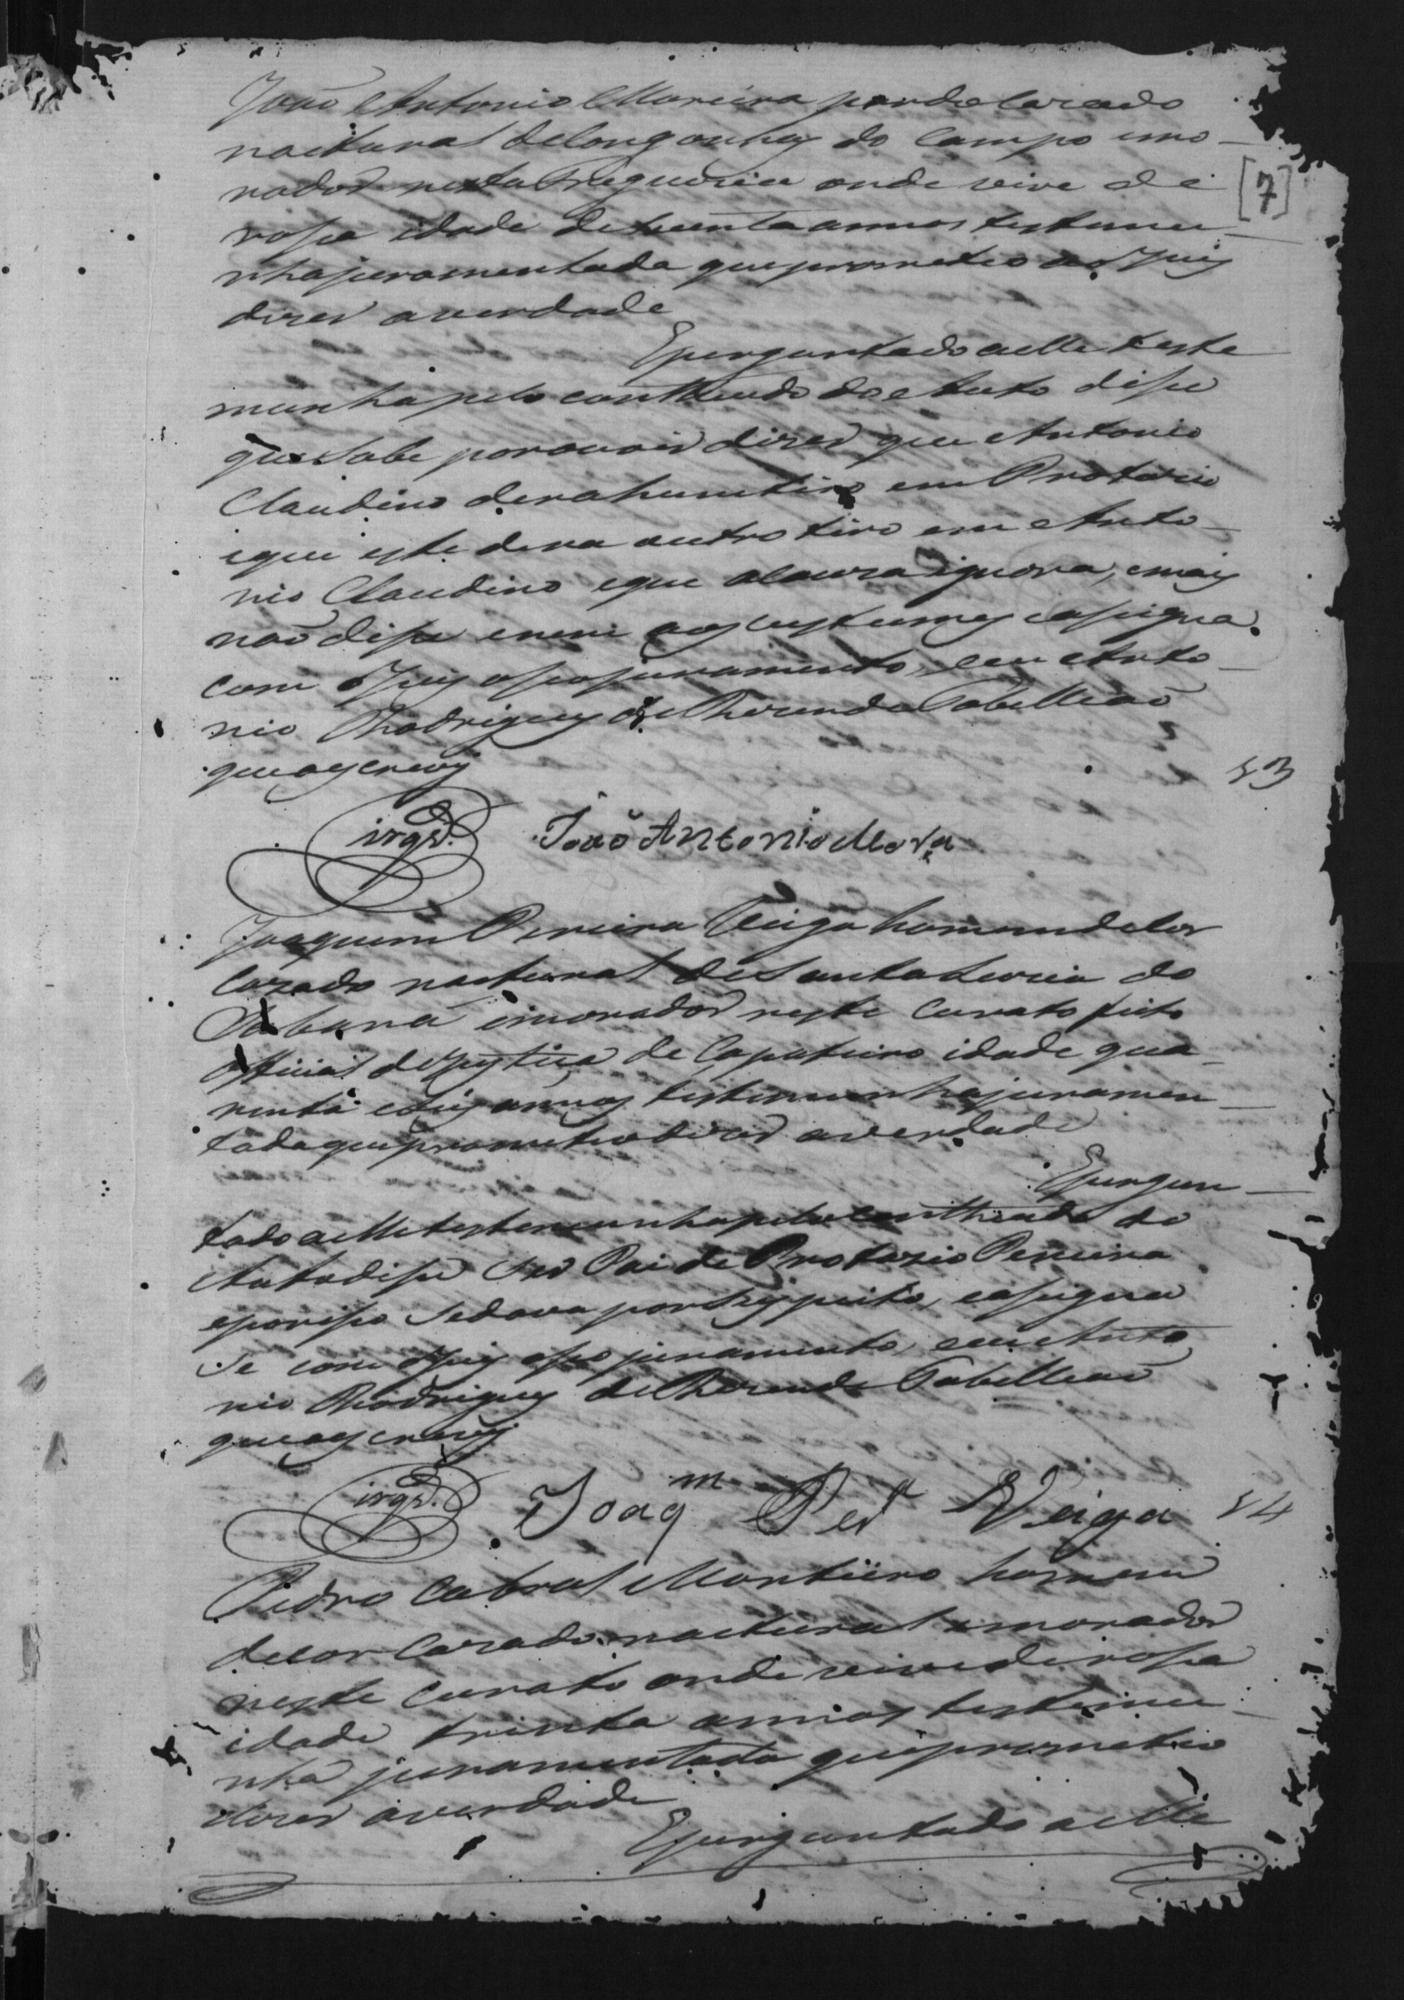 João Antonio Moreira pardo cazado
natural de Congonhas do Campo emo-
rador nesta Freguezia onde vive de
[7]
rossa idade de trinta annos testemu-
nha juramentada que prometeo ao Juis
dizer averdade
Eperguntado aelle teste
munha pelo contheudo do Auto disse
que Sabe por ouvir dizer que Antonio
Claudino dera hum tiro em Protazio
eque este dera outro tiro em Anto-
nio Claudino eque acauza ignora, emais
não disse enem aos custumes easigna
com o Juis o seo juramento, eeu Anto-
nio Rodrigues de Rezende Tabelliaõ
que oescrevi
S3
João Antonio Mor.ª
Joaquim Pereira Veiga homem de Cor
Cazado natural de Santa Luzia do
Sabará emorador neste Curato
Official de Justiça de Çapateiro idade qua-
renta eSeis annos testemunha juramen-
tada que prometeo dizer averdade
Epergun-
tado aelle testemunha pelo contheudo do
Auto disse Ser Pai de Protazio Pereira
eporisso Sedava por Suspeito, easigna
se com o Juis o seo juramento, eeu Anto
nio Rodrigues de Rezende Tabelliaõ
que oescrevi
Joaqm Per.ª Veiga S4
Pedro Cabral Monteiro homem
de cor Cazado natural emorador
neste Curato onde vive de rossa
idade trinta annos testemu-
nha juramentada que prometeo
dizer averdade
Eperguntado aelle